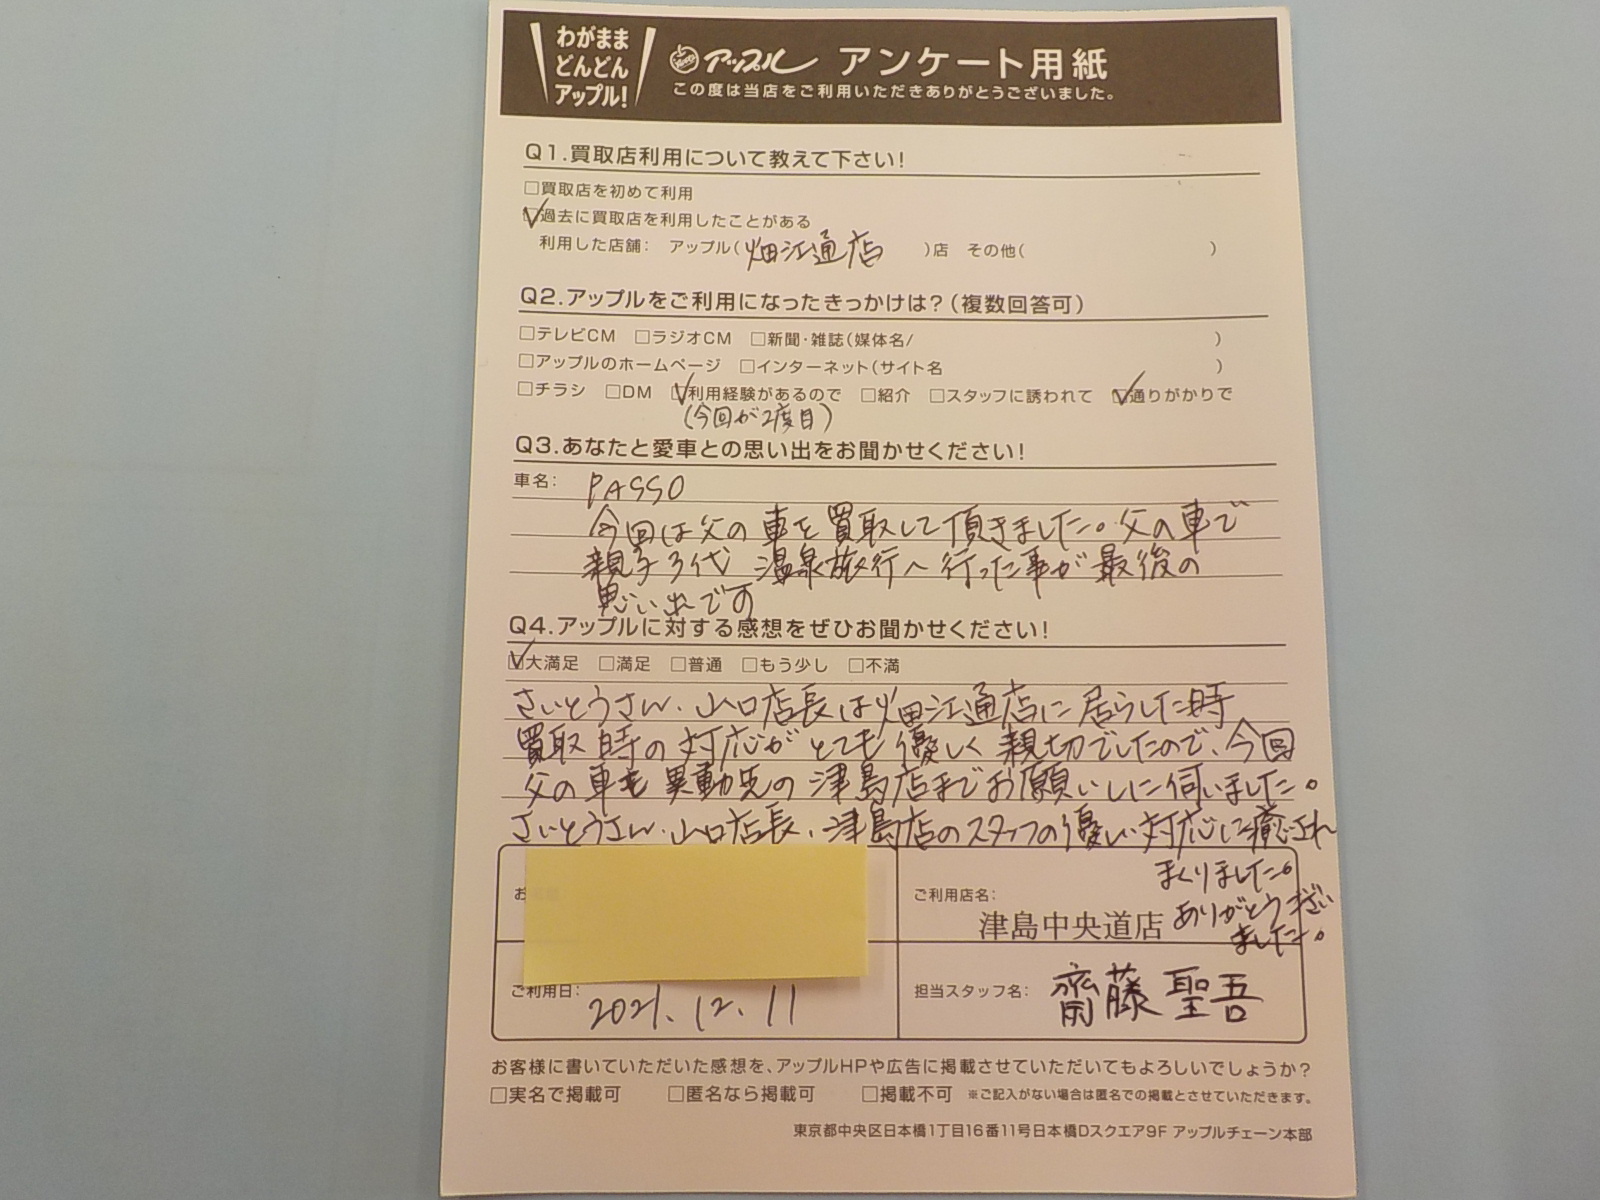 わがまま
どんどん
アップル!
アップル アンケート用紙
この度は当店をご利用いただきありがとうございました。
Q1.買取店利用について教えて下さい!
□買取店を初めて利用
☑過去に買取店を利用したことがある
利用した店舗: アップル(畑江通店 )店 その他( )
Q2.アップルをご利用になったきっかけは?(複数回答可)
□テレビCM □ラジオCM □新聞・雑誌(媒体名/ )
□アップルのホームページ □インターネット(サイト名 )
□チラシ □DM ☑利用経験があるので □紹介 □スタッフに誘われて ☑通りがかりで
(今回が2度目)
Q3.あなたと愛車との思い出をお聞かせください!
車名: PASSO
今回は父の車を買取して頂きました。父の車で
親子3代 温泉旅行へ行った事が最後の
思い出です
Q4.アップルに対する感想をぜひお聞かせください!
☑大満足 □満足 □普通 □もう少し □不満
さいとうさん、山口店長は畑江通店に居らした時
買取時の対応がとても優しく親切でしたので、今回
父の車も異動先の津島店までお願いしに伺いました。
さいとうさん、山口店長、津島店のスタッフの優しい対応に癒され
まくりました。
ありがとうござい
ました。
お
ご利用店名:
津島中央道店
ご利用日: 2021.12.11
担当スタッフ名: 齋藤 聖吾
お客様に書いていただいた感想を、アップルHPや広告に掲載させていただいてもよろしいでしょうか?
□実名で掲載可 □匿名なら掲載可 □掲載不可 ※ご記入がない場合は匿名での掲載とさせていただきます。
東京都中央区日本橋1丁目16番11号日本橋Dスクエア9F アップルチェーン本部